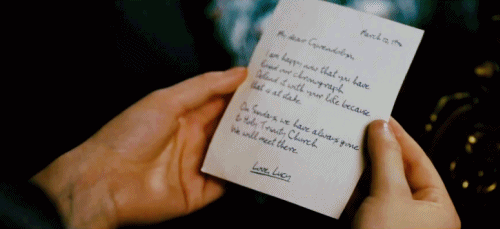 March
My dear
I am happy now that you have
our chronograph
Defend it with your life because
that is at stake.
On Sundays we have always gone
to Holy Trinity Church
We will meet there.
Love, Lucy